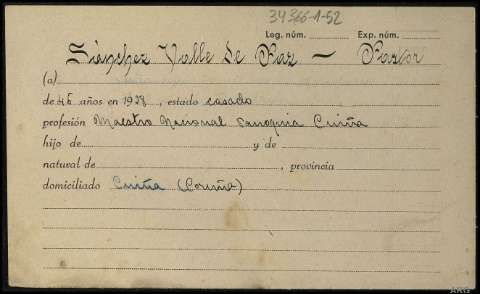 34366-1-52
Leg. núm. Exp. núm.
Sánchez Valle de Paz — Pastor
(a)
de 46 años en 1938, estado casado
profesión Maestro Nacional Parroquia Cuiña
hijo de y de
natural de , provincia
domiciliado Cuiña (Coruña)